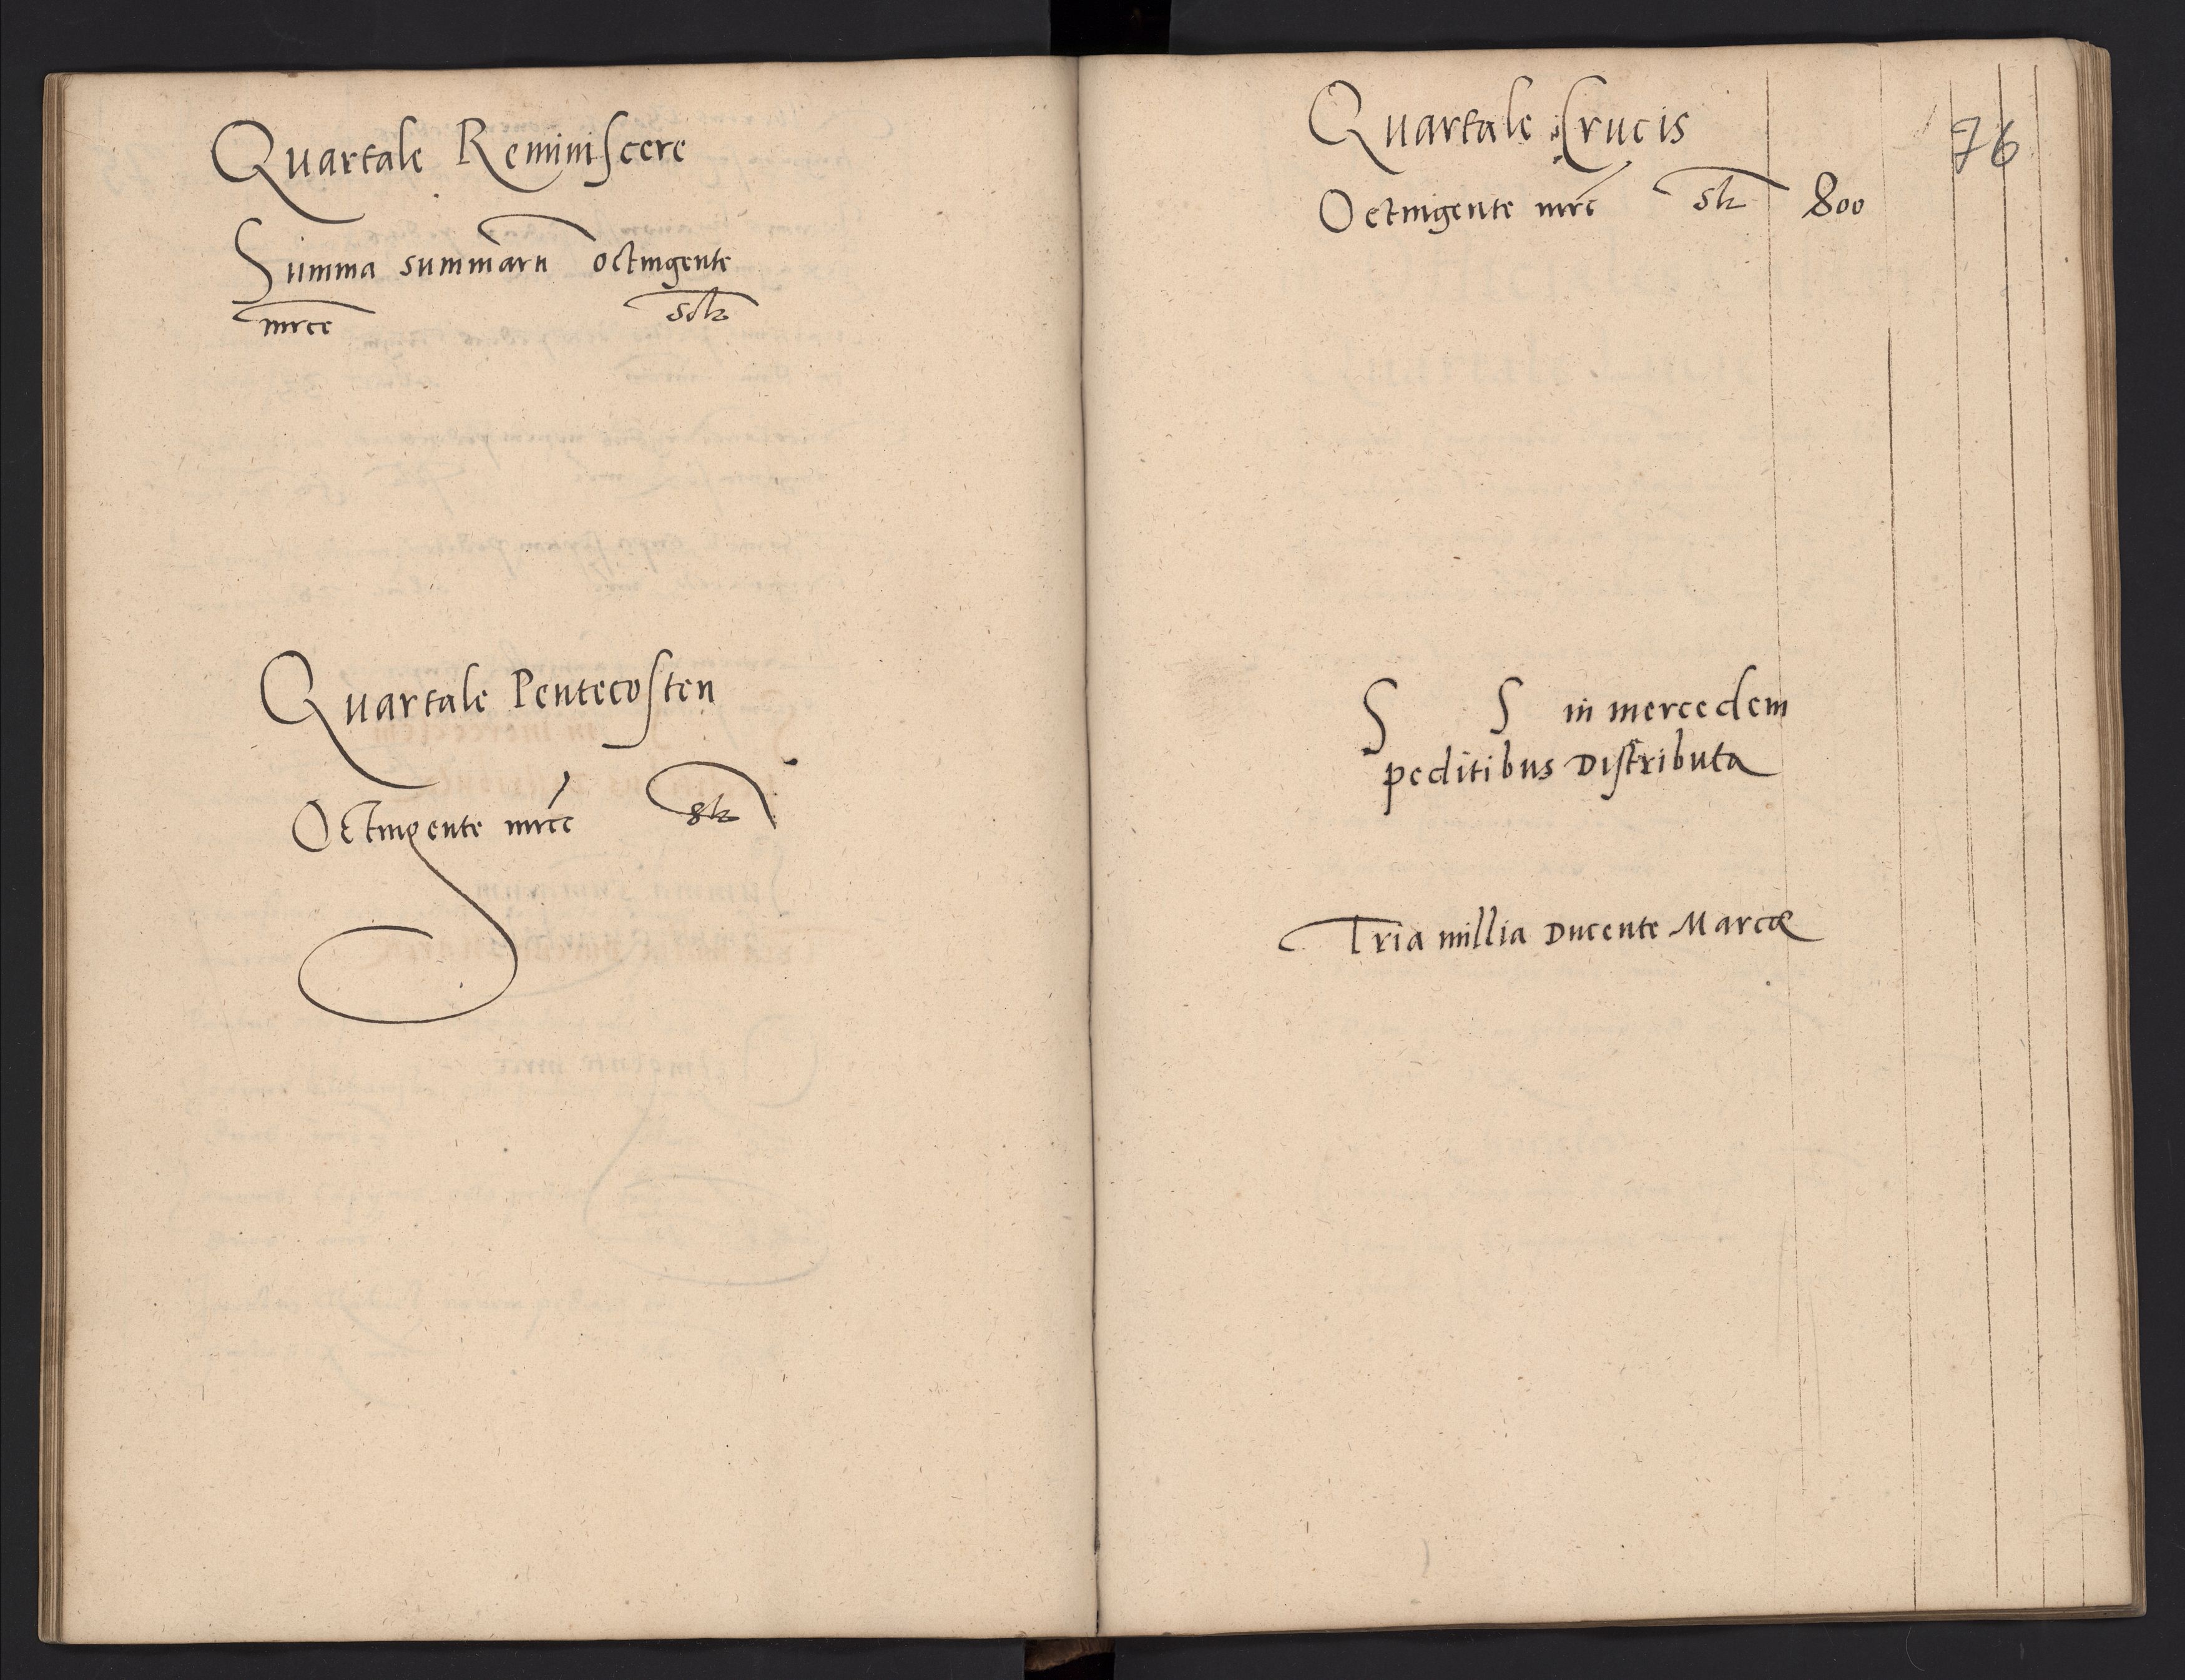 Quartale Reminiscere
Summa summaru octingente
mrcc solz
Quartale Pentecosten
Octingente mrcc slz
76
Quartale Crucis
Octingente mrc slz 800
S S in mercedem
peditibus Distributa
Tria millia Ducente Marcæ